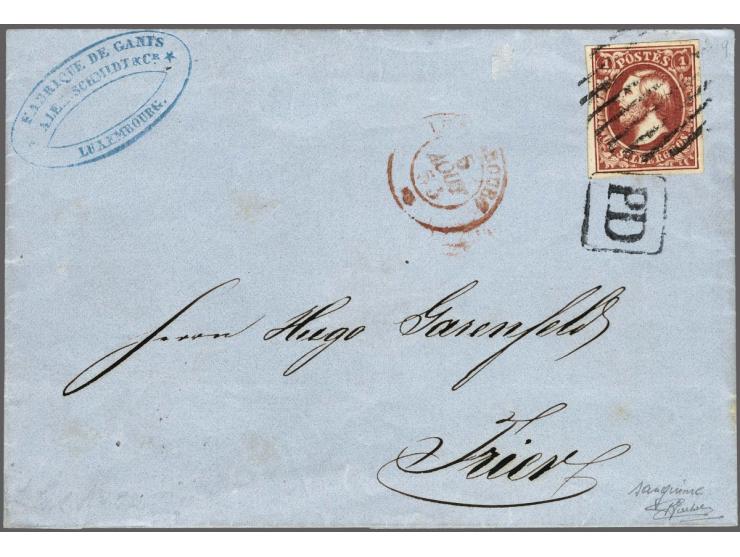 FABRIQUE DE GANTS
SCHMIDT & CIE
LUXEMBOURG.
1 POSTES 1
UN SILBERGROS
AOUT
PD
Herrn Hugo Garenfeld
Trier
sanguine